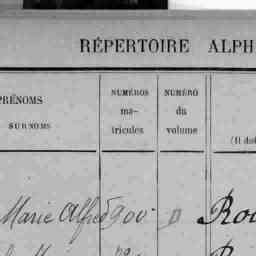 RÉPERTOIRE ALPH
PRÉNOMS
SURNOMS
NUMÉROS
ma-
tricules
NUMÉRO
du
volume
(Il doi
Marie Alfred 900